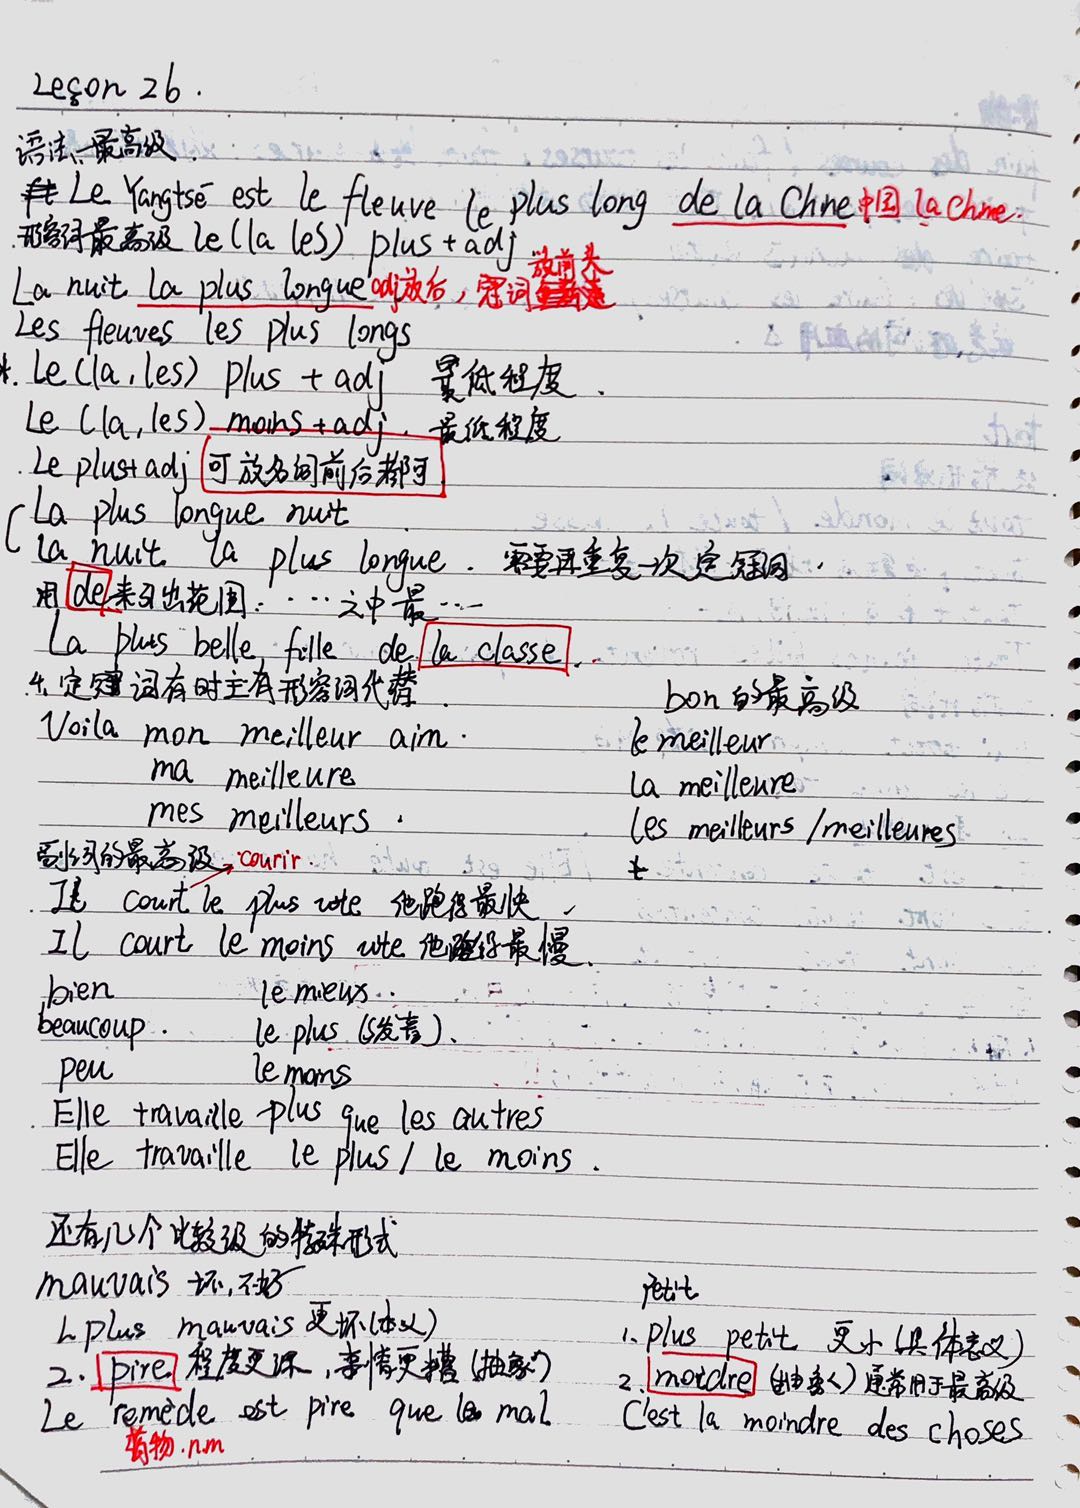 Leçon 26.
语法、最高级.
Le Yangtsé est le fleuve le plus long de la Chine 中国 la Chine.
形容词最高级 le (la les) plus + adj
放前头
La nuit la plus longue adj放后，冠词
Les fleuves les plus longs
Le (la, les) plus + adj 最低程度.
Le (la, les) moins + adj. 最低程度
Le plus + adj 可放名词前后都可
La plus longue nuit
La nuit la plus longue. 需要再重复一次定冠词.
用 de 来引出范围. ……之中最……
La plus belle fille de la classe.
4. 定冠词有时主有形容词代替
bon 的最高级
Voila mon meilleur aim. le meilleur
ma meilleure La meilleure
mes meilleurs. Les meilleurs / meilleures
副词的最高级 courir.
Il court le plus vite 他跑得最快
Il court le moins vite 他跑得最慢.
bien le mieux.
beaucoup. le plus (s发音).
peu le moins
Elle travaille plus que les autres
Elle travaille le plus / le moins.
还有几个比较级的特殊形式
mauvais 坏, 不好 petit
1. plus mauvais 更坏(本义) 1. plus petit 更小 (具体意义)
2. pire 程度更深, 事情更糟 (抽象) 2. moidre (抽象) 通常用于最高级
Le remède est pire que le mal C'est la moindre des choses
药物.n.m